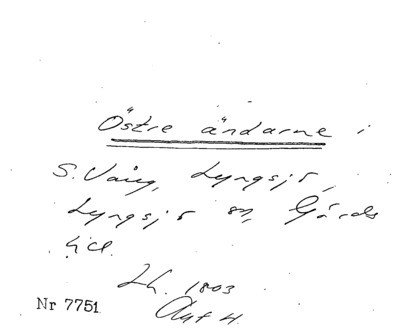 Östre ändarne i
S. Vång, Lyngsjö,
Lyngsjö sn, Gärds
hd.
Lh. 1803
Akt 4
Nr 7751